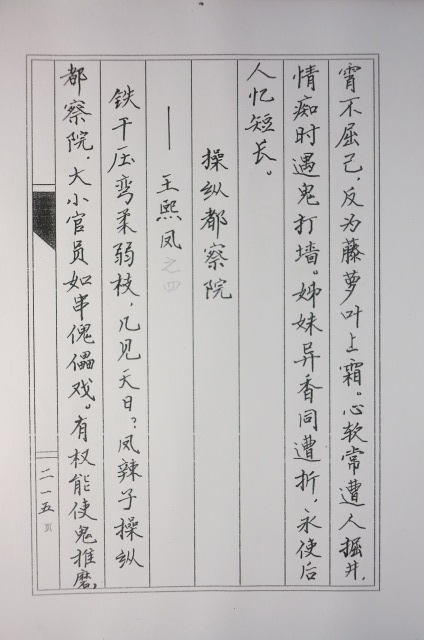 霄不屈己，反为藤萝叶上霜。心软常遭人掘井，
情痴时遇鬼打墙。姊妹异香同遭折，永使后
人忆短长。
操纵都察院
——王熙凤之四
铁干压弯柔弱枝，几见天日？凤辣子操纵
都察院，大小官员如串傀儡戏。有权能使鬼推磨，
二一五页